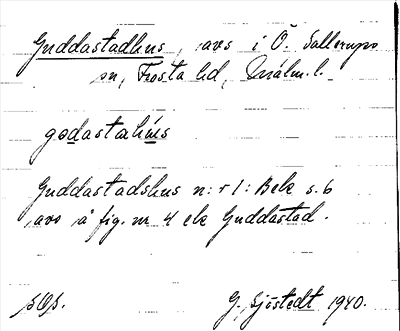 Guddastadhus, avs i Ö. Sallerups
sn, Frosta hd, Malm. l.
godastahús
Guddastadshus n:r 1: Bek s. 6
avs å fig. nr 4 ek Guddastad.
G. Sjöstedt 1940.